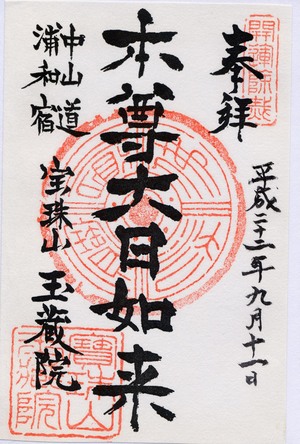 奉拝
平成二十二年九月十一日
本尊大日如来
中山道
浦和宿
宝珠山
玉蔵院